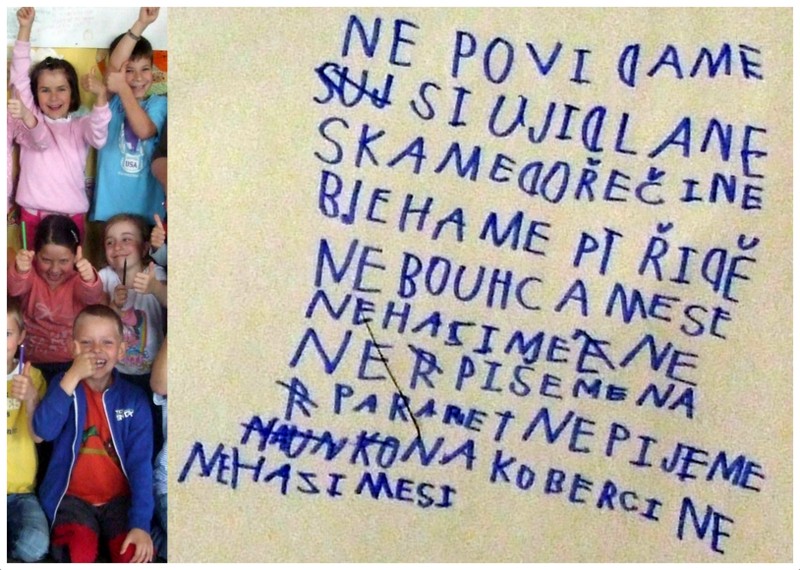 NE POVIDAME
SI UJIDLANE
SKAMEDOŘEČINE
BJEHAME PT ŘIDĚ
NEBOUHCAMESE
NEHASIME NE
NE PIŠEME NA
PARAPET NEPIJEME
NA KOBERCI NE
NEHASIMESI